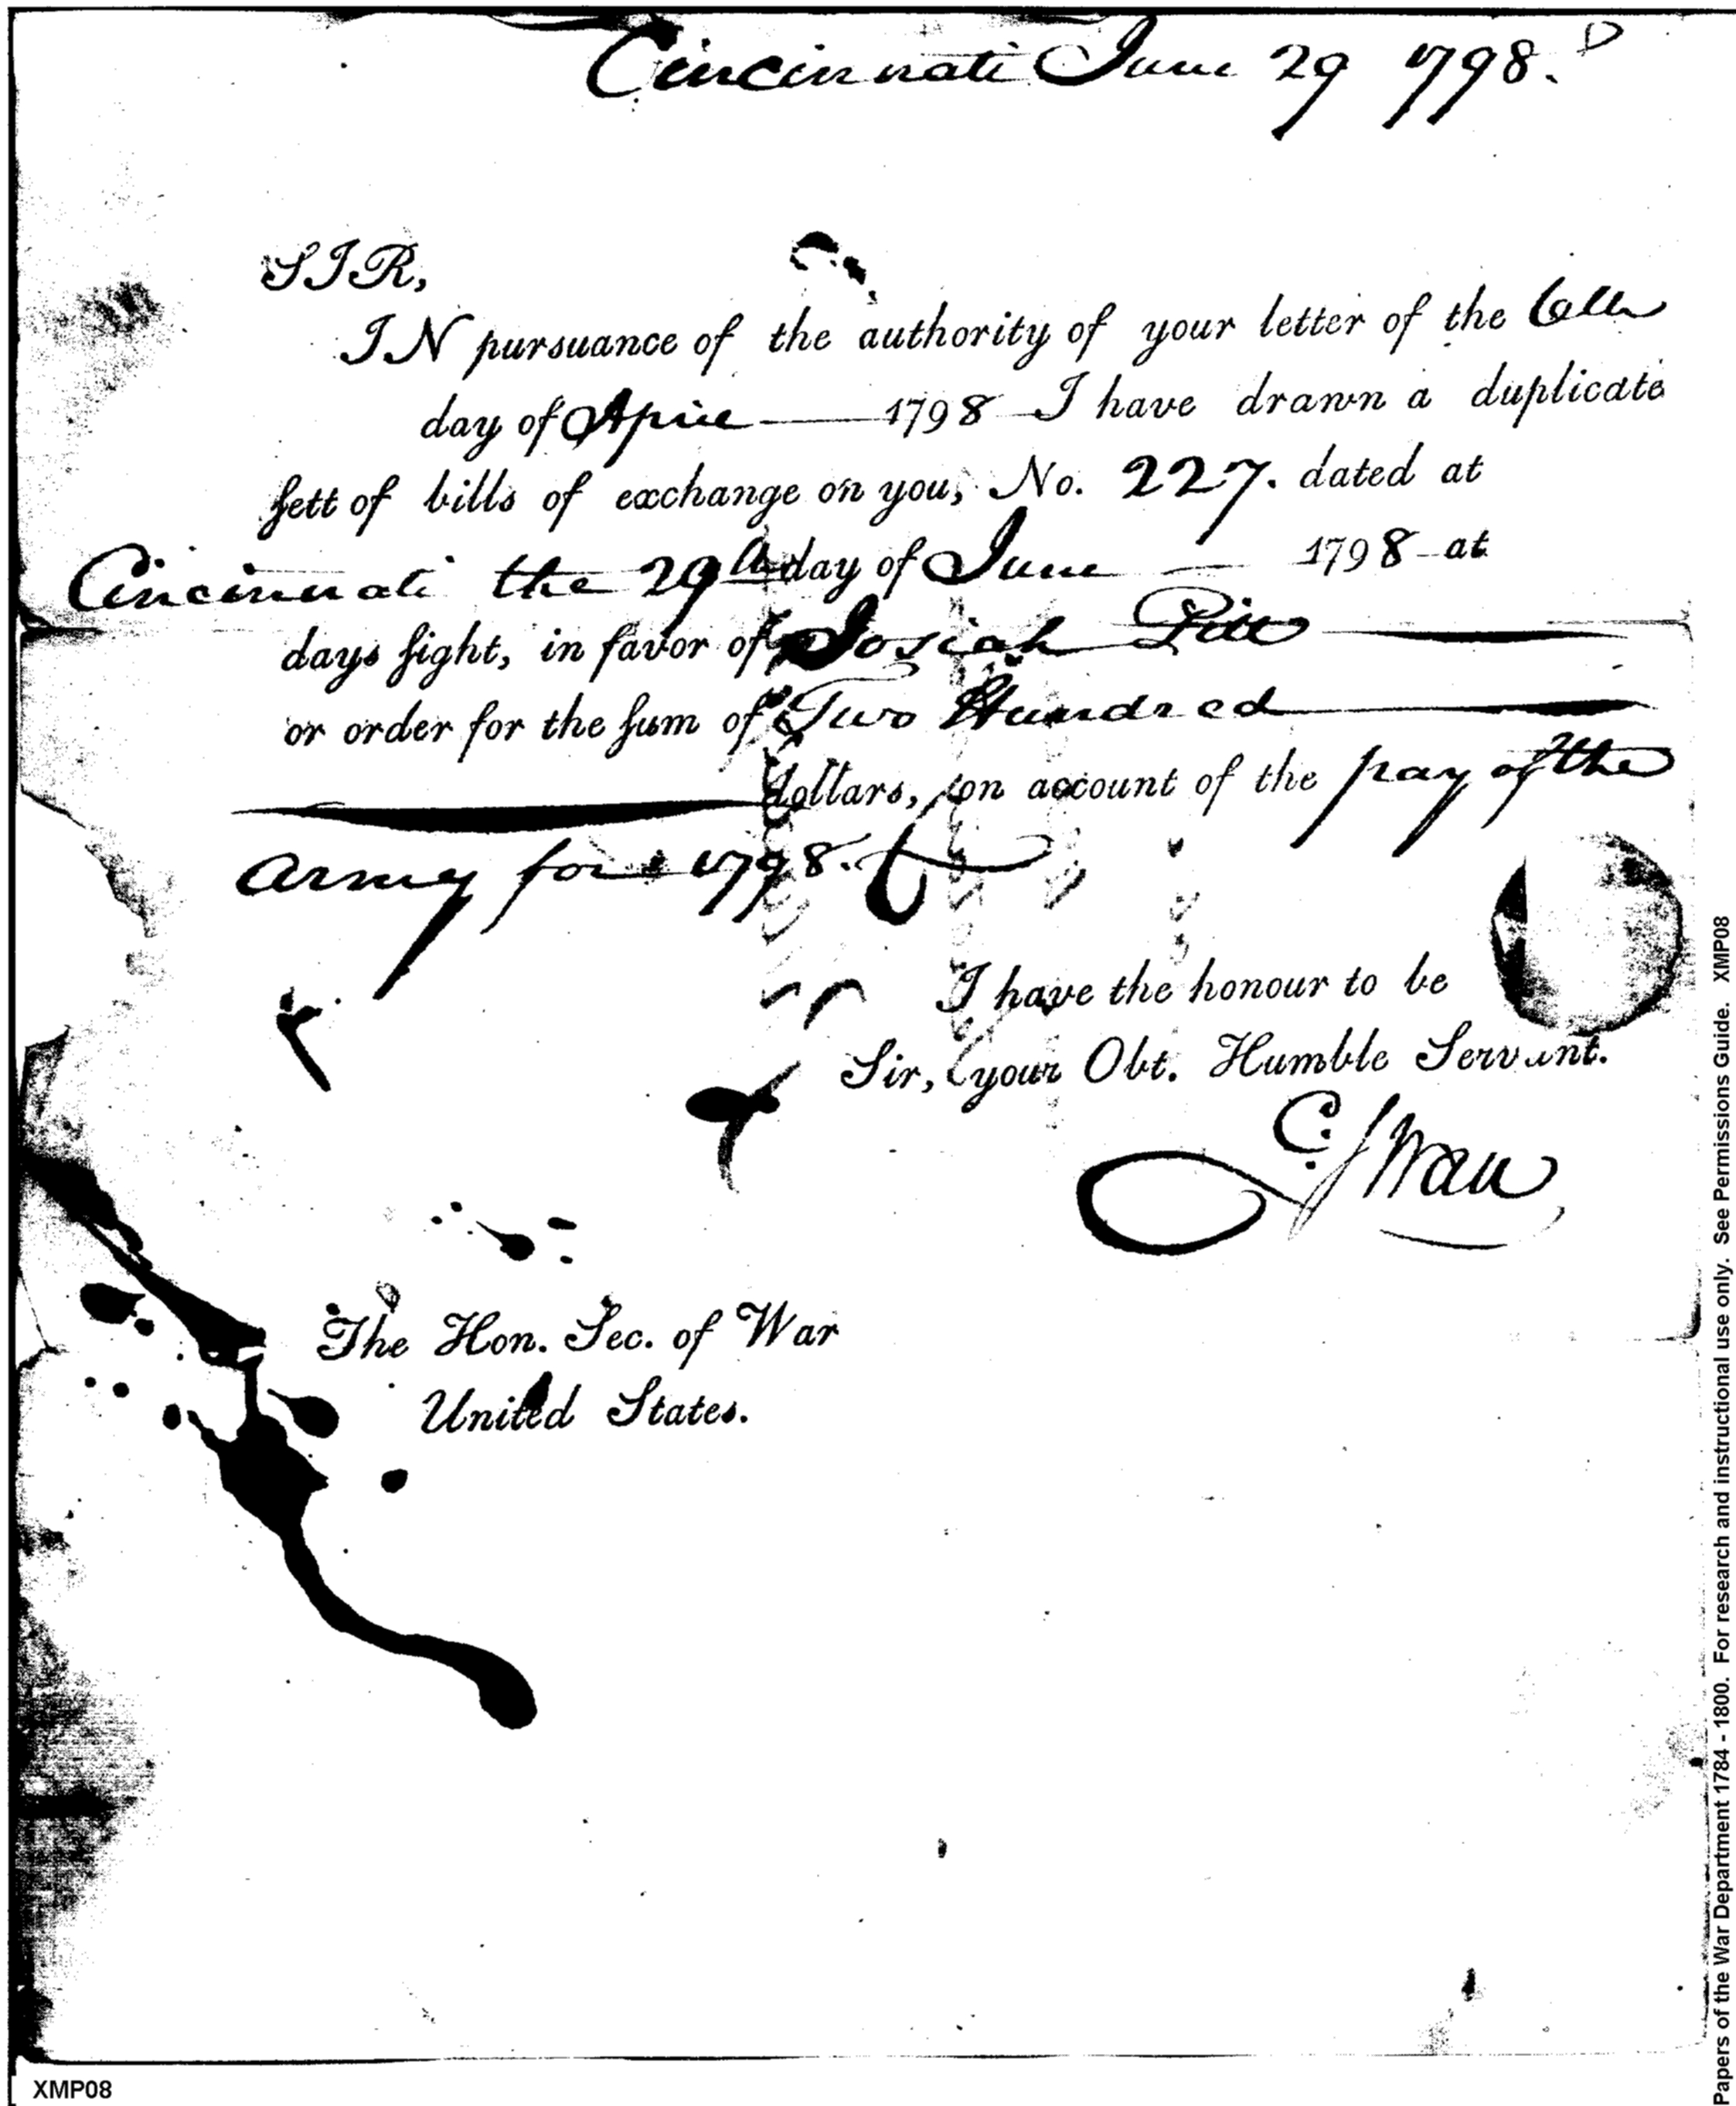 Cincinnati June 29 1798.
SIR,
IN pursuance of the authority of your letter of the 6th
day of April 1798 I have drawn a duplicate
sett of bills of exchange on you, No. 227. dated at
Cincinnati the 29th day of June 1798 at
days sight, in favor of Josiah
or order for the sum of Two Hundred
dollars, on account of the pay of the
Army for 1798.
I have the honour to be
Sir, your Obt. Humble Servant.
C. Swan
The Hon. Sec. of War
United States.
XMP08
Papers of the War Department 1784 - 1800. For research and instructional use only. See Permissions Guide. XMP08